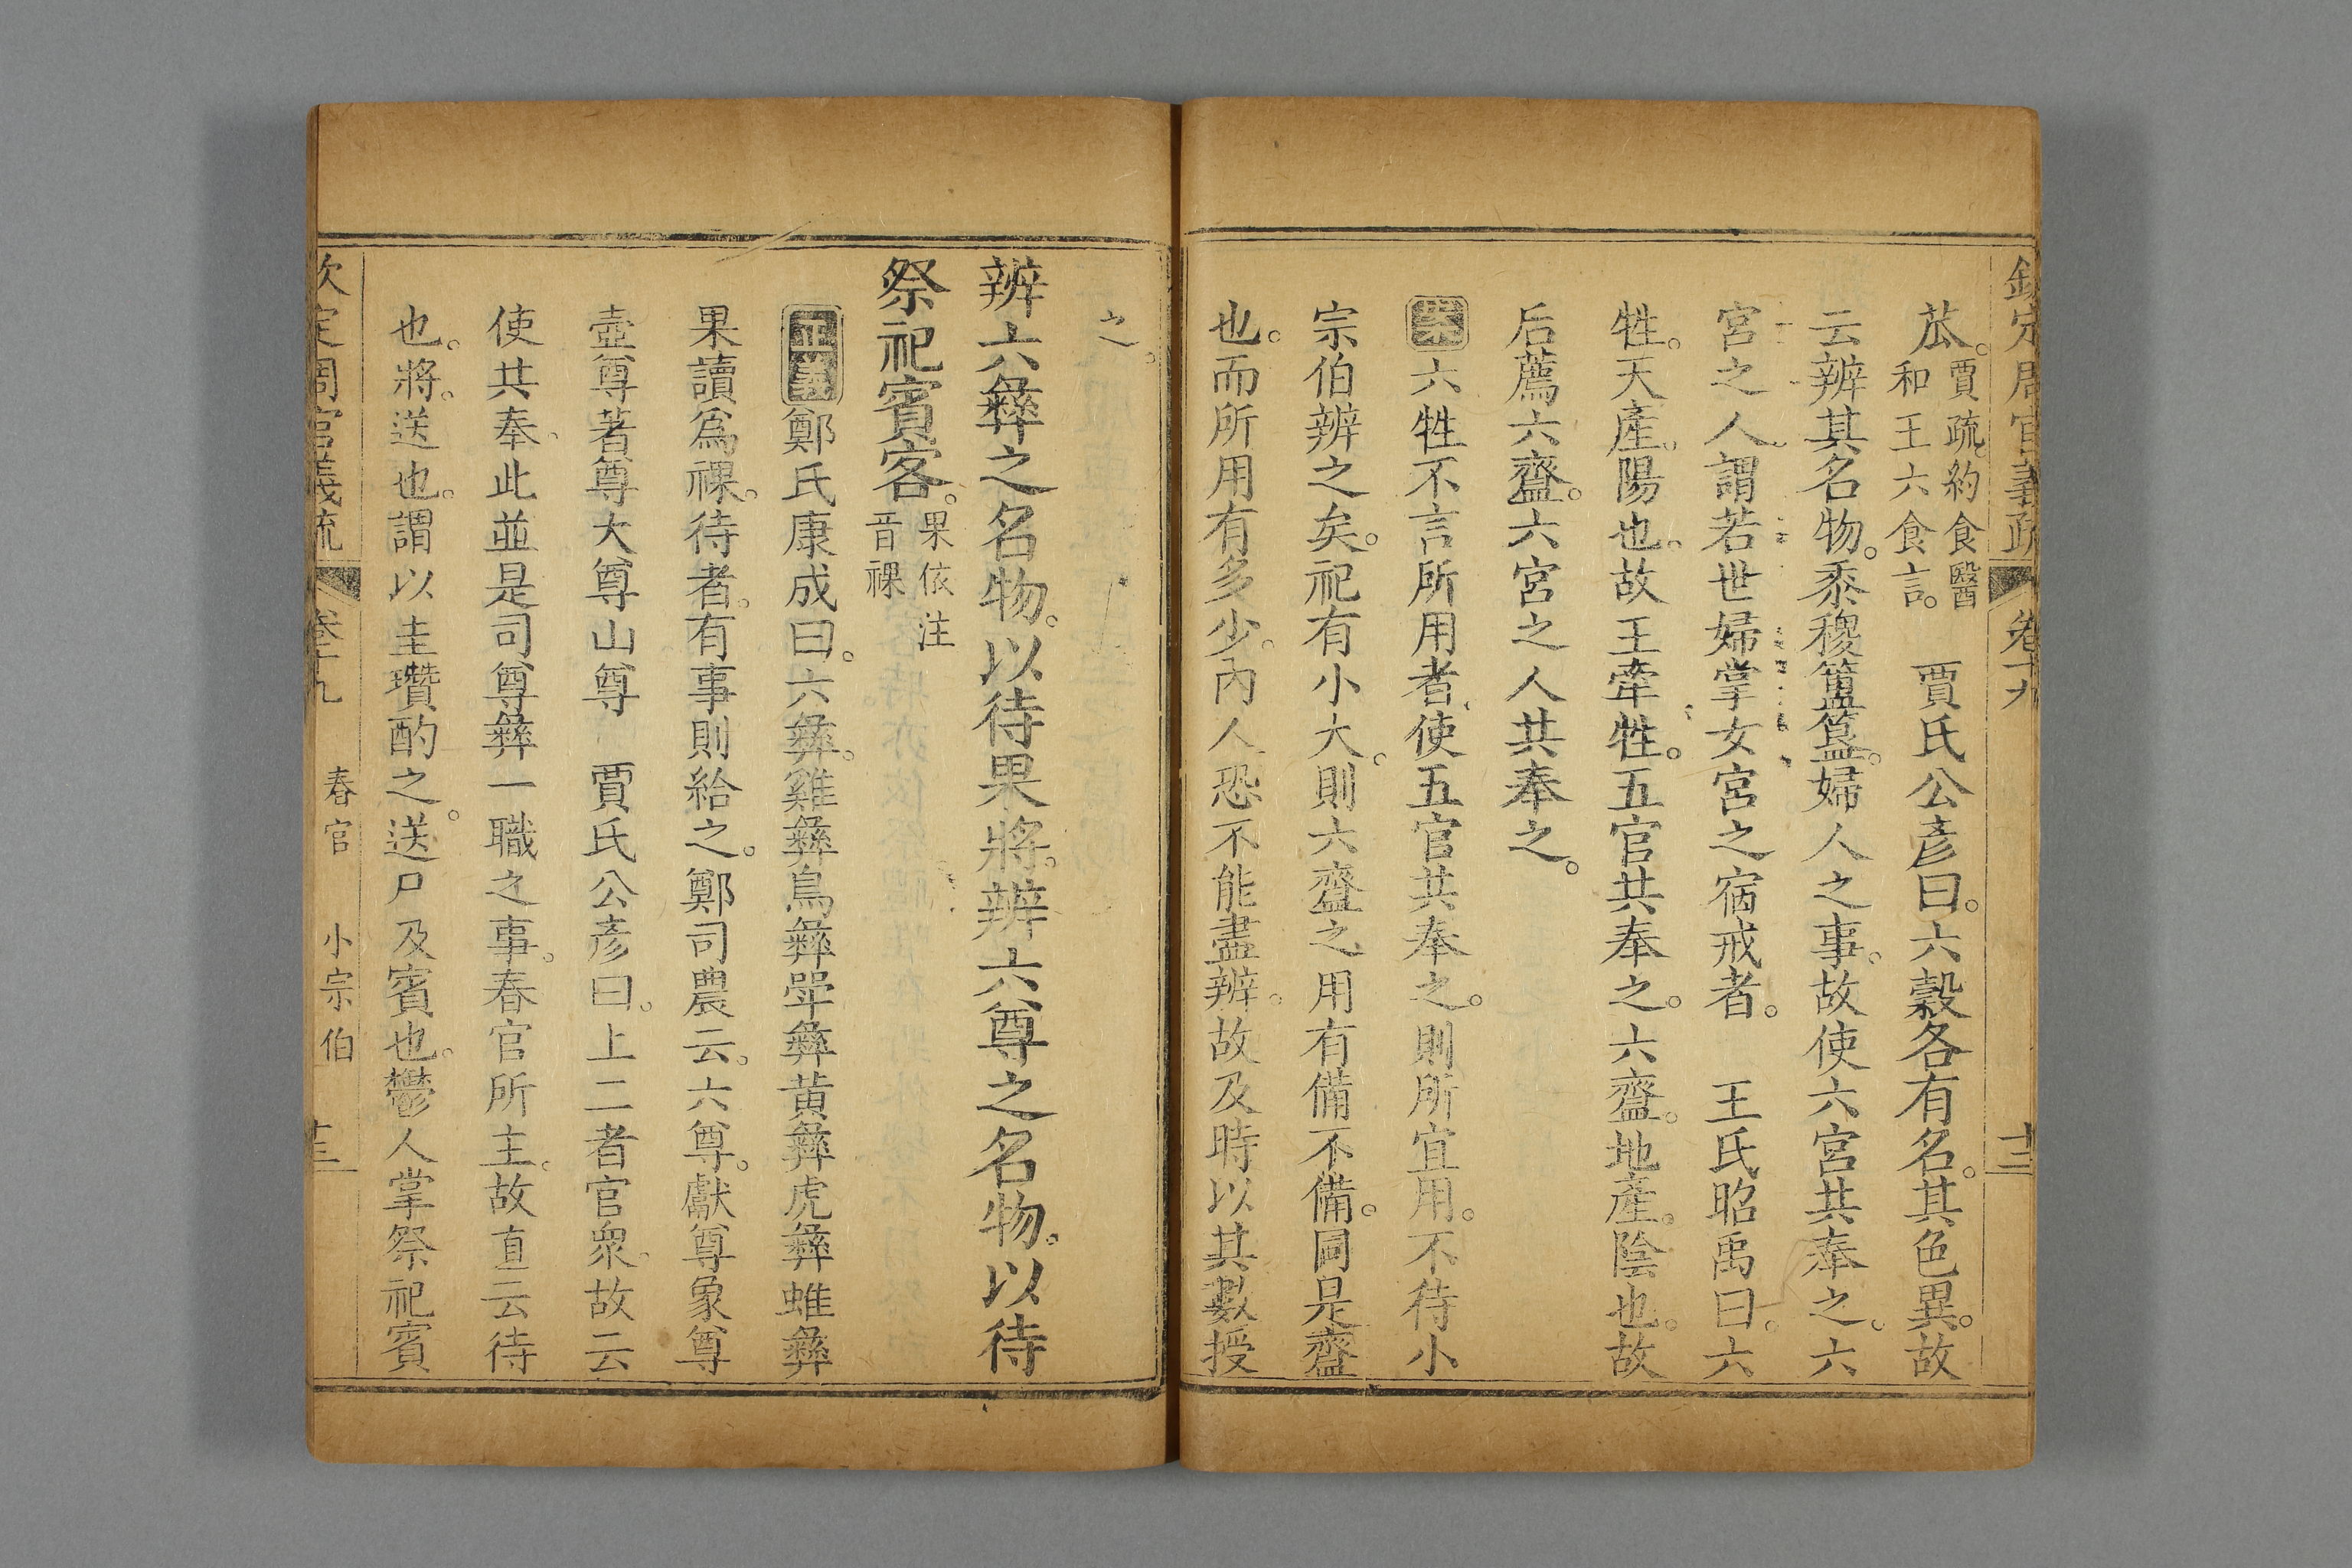 欽定周官義疏 卷十九 十三
苽。賈疏。約食醫和王六食言。 賈氏公彥曰。六穀各有名。其色異。故
云辨其名物。黍稷簠簋。婦人之事。故使六宮共奉之。六
宮之人。謂若世婦掌女宮之宿戒者。 王氏昭禹曰。六
牲。天產。陽也。故王牽牲。五官共奉之。六齍。地產。陰也。故
后薦六齍。六宮之人共奉之。
案六牲不言所用者。使五官共奉之。則所宜用。不待小
宗伯辨之矣。祀有小大。則六齍之用有備不備。同是齍
也。而所用有多少。內人恐不能盡辨。故及時以其數授
之。
辨六彝之名物。以待果將。辨六尊之名物。以待
祭祀賓客。果依注音祼
正義鄭氏康成曰。六彝。雞彝鳥彝斝彝黃彝虎彝蜼彝
果讀爲祼。待者。有事則給之。鄭司農云。六尊。獻尊象尊
壺尊著尊大尊山尊 賈氏公彥曰。上二者官衆。故云
使共奉。此並是司尊彝一職之事。春官所主。故直云待
也。將。送也。謂以圭瓚酌之。送尸及賓也。鬱人掌祭祀賓
欽定周官義疏 卷十九 春官 小宗伯 十三